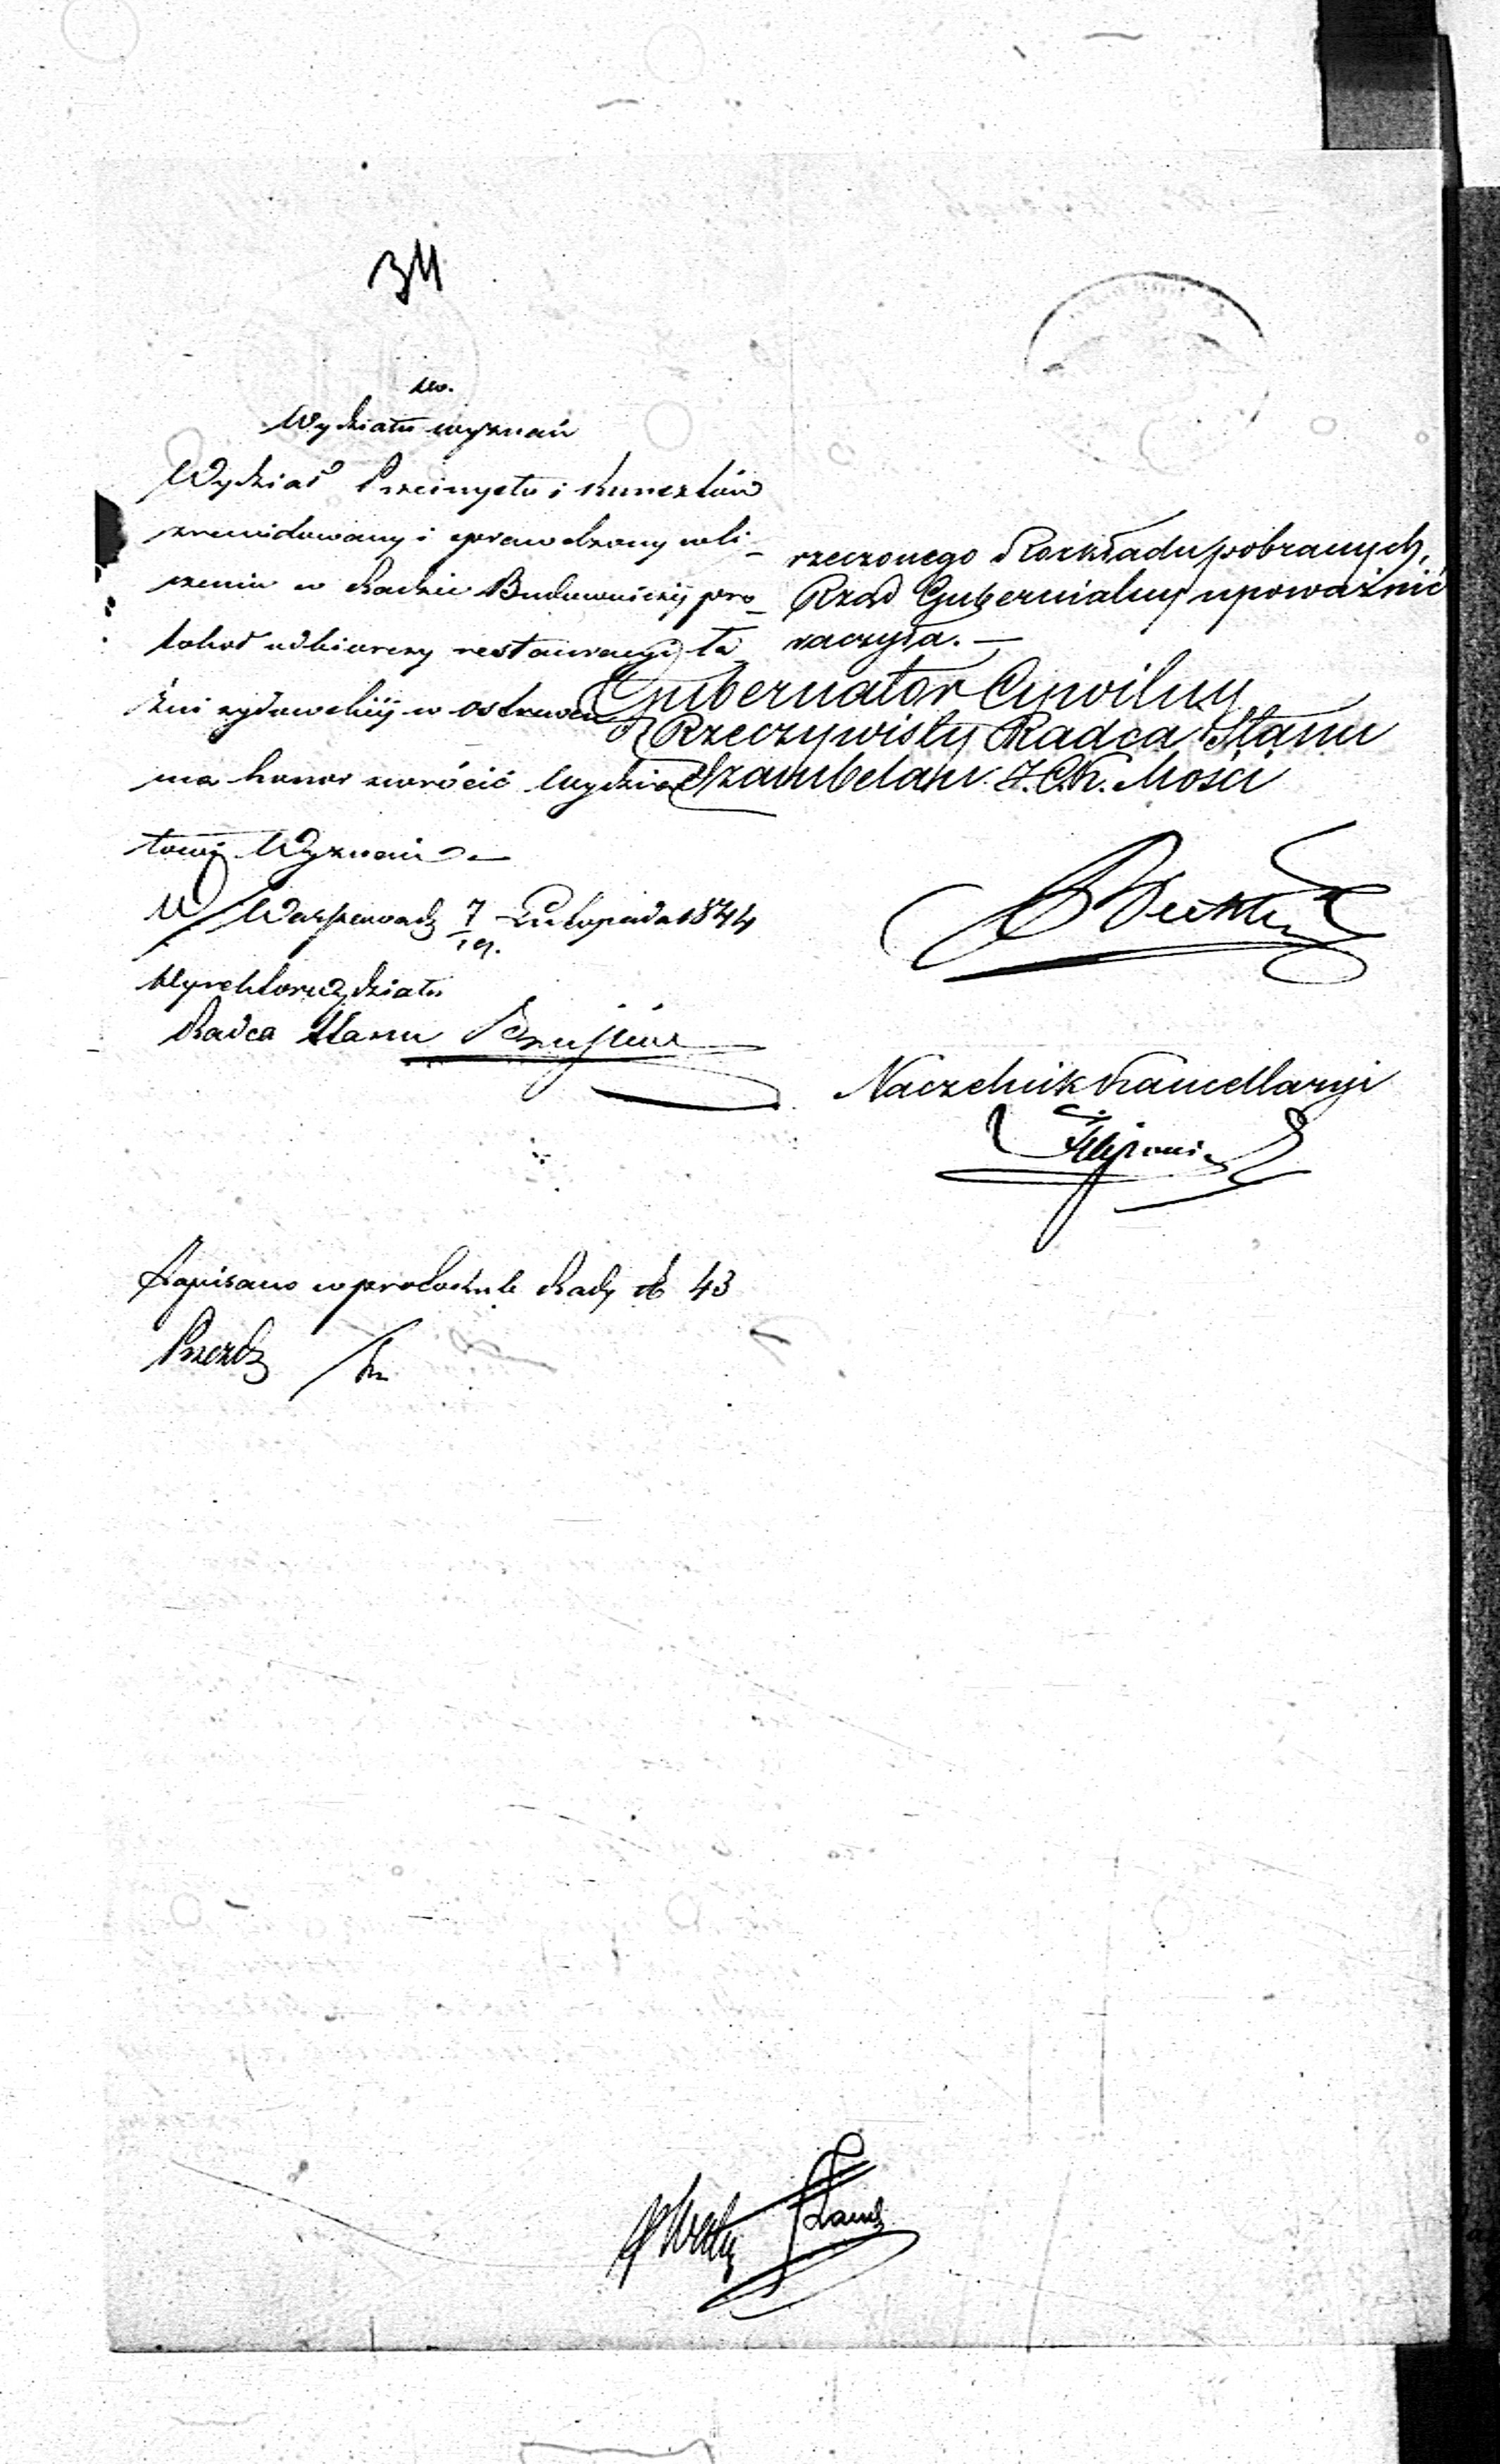 34
do.
Wydziału wyznań
Wydział Przemysłu i Kunsztów
zrewidowany i sprawdzony w li-
czeniu w Radzie Budowniczej pro-
tokoł odbiorczy restauracyi ła
źni żydowskiej w Ostrowcu
ma honor zwrócić Wydzia
łowi Wyznań. —
W Warszawie 7/19. Listopada 1844
Dyrektor Wydziału
Radca Stanu
Zapisano w protokule Rady № 43
rzeczonego Rozkładu pobranych,
Rząd Gubernialny upoważnić
raczyła. —
Gubernator Cywilny
Rzeczywisty Radca Stanu
Szambelan J. C. K. Mości
Naczelnik Kancellaryi